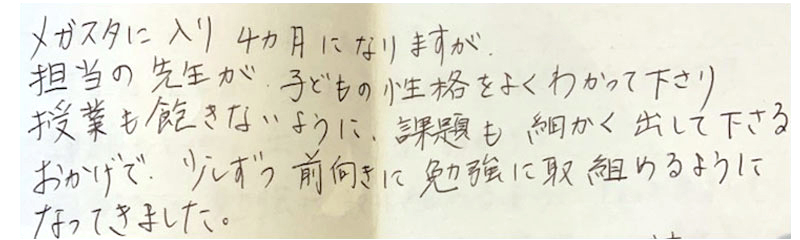 メガスタに入り4カ月になりますが、
担当の先生が、子どもの性格をよくわかって下さり
授業も飽きないように、課題も細かく出して下さる
おかげで、少しずつ前向きに勉強に取組めるように
なってきました。